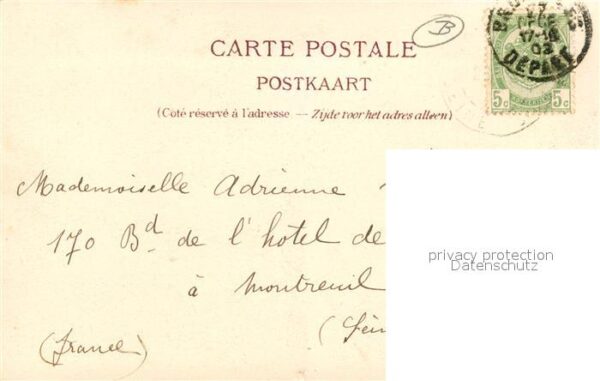 B
BRUXELLES
27
DECE
17-18
03
DEPART
CARTE POSTALE
POSTKAART
(Coté réservé à l'adresse — Zijde voor het adres alleen)
5c 5c
Mademoiselle Adrienne
170 Bd de l'hotel de
à Montreuil
(Sein
(France)
privacy protection
Datenschutz